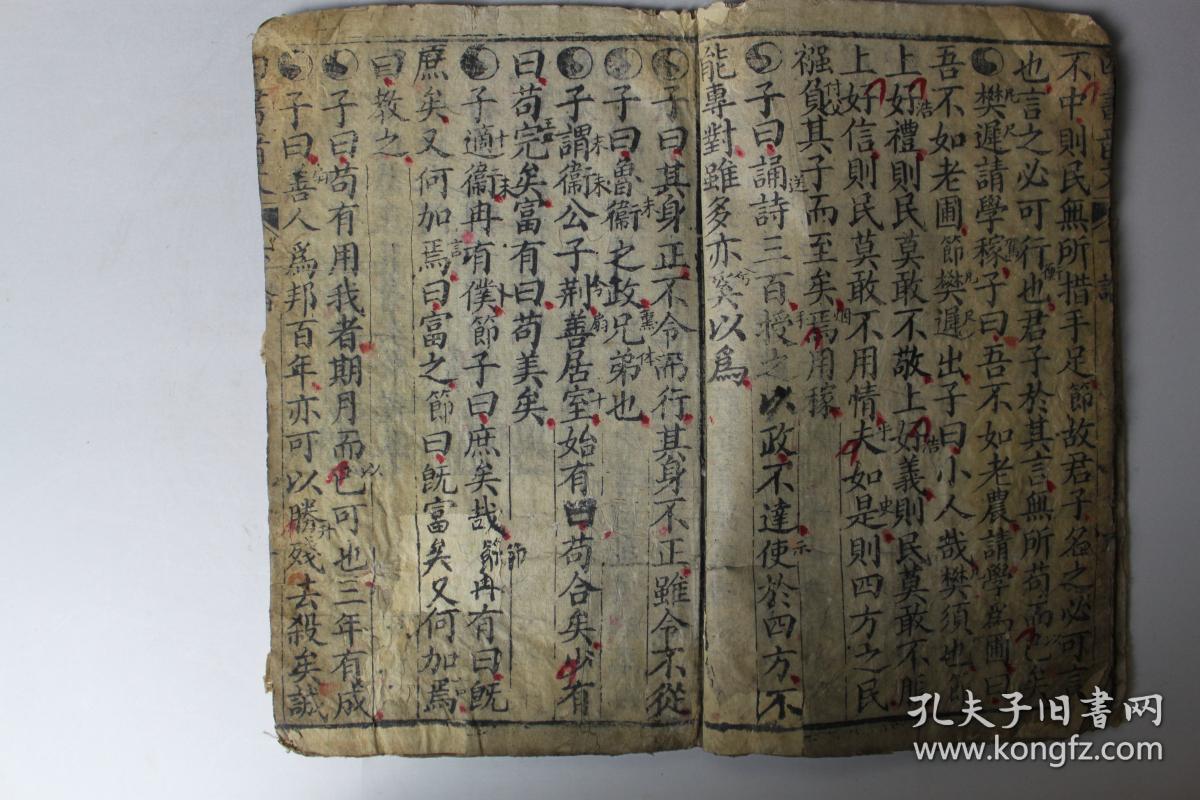 不中則民無所措手足節故君子名之必可言
也言之必可行也君子於其言無所苟而已矣
樊遲請學稼子曰吾不如老農請學爲圃曰
吾不如老圃節樊遲出子曰小人哉樊須也節
上好禮則民莫敢不敬上好義則民莫敢不服
上好信則民莫敢不用情夫如是則四方之民
襁負其子而至矣焉用稼
子曰誦詩三百授之以政不達使於四方不
能專對雖多亦奚以爲
子曰其身正不令而行其身不正雖令不從
子曰魯衞之政兄弟也
子謂衞公子荆善居室始有曰苟合矣少有
曰苟完矣富有曰苟美矣
子適衞冉有僕節子曰庶矣哉節冉有曰既
庶矣又何加焉曰富之節曰既富矣又何加焉
曰教之
子曰苟有用我者期月而已可也三年有成
子曰善人爲邦百年亦可以勝殘去殺矣誠
孔夫子旧书网
www.kongfz.com